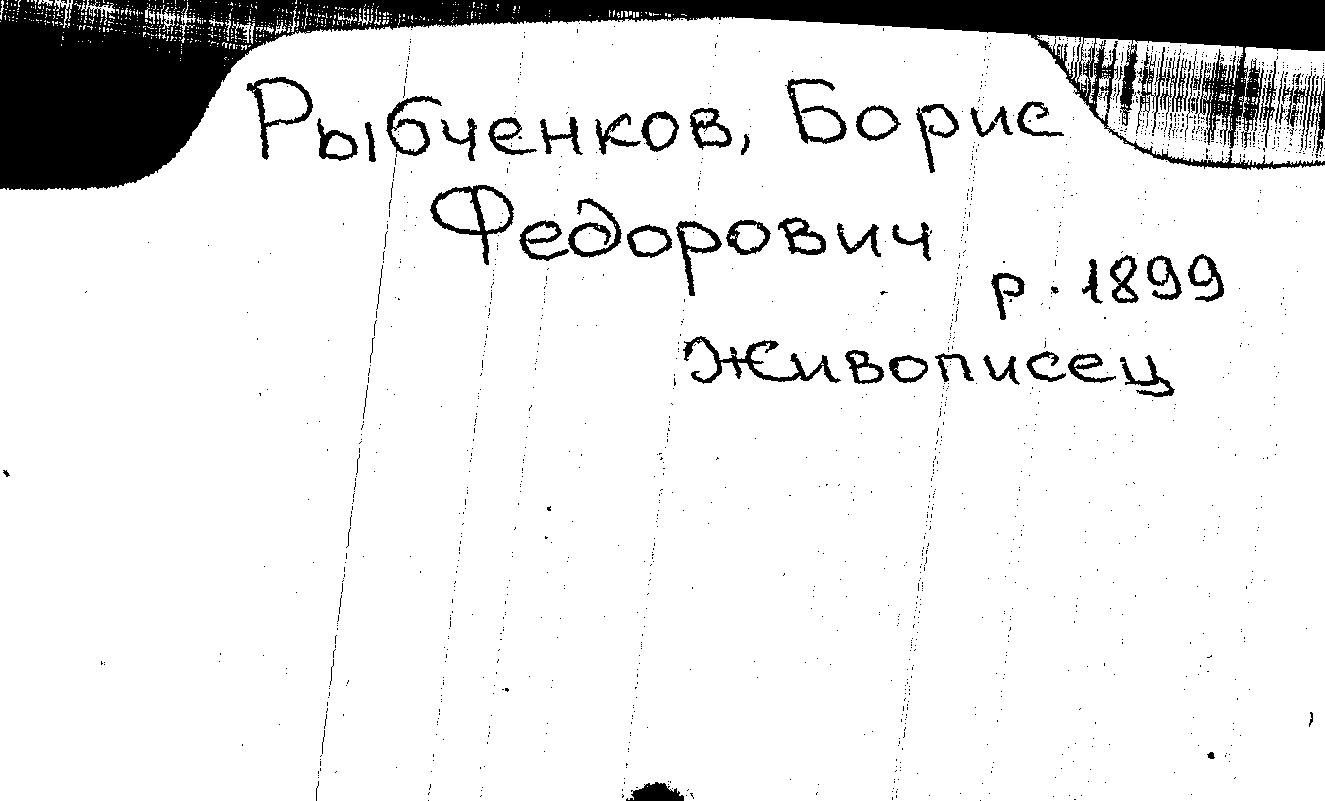 Рыбченков, Борис
Федорович
р. 1899
Живописец